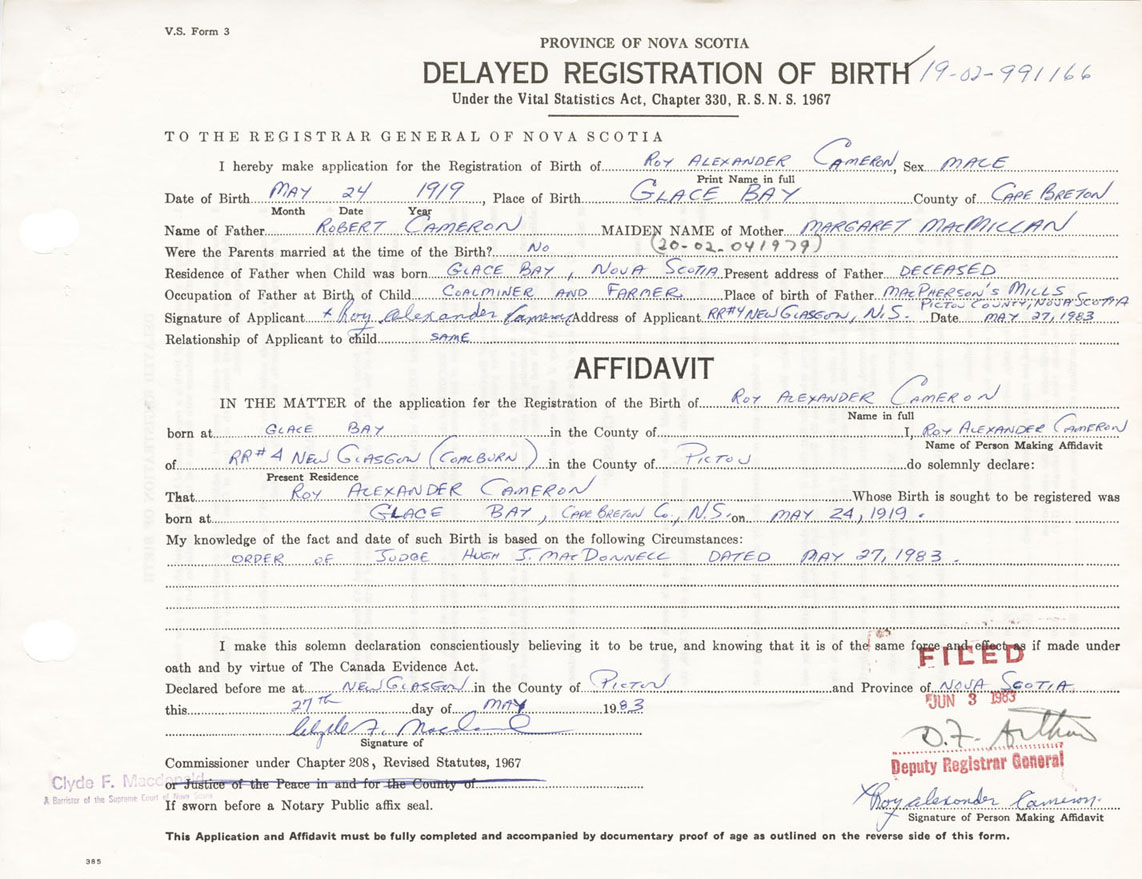 V.S. Form 3
PROVINCE OF NOVA SCOTIA
DELAYED REGISTRATION OF BIRTH 19-02-991166
Under the Vital Statistics Act, Chapter 330, R.S.N.S. 1967
TO THE REGISTRAR GENERAL OF NOVA SCOTIA
I hereby make application for the Registration of Birth of ROY ALEXANDER CAMERON, Sex MALE
Print Name in full
Date of Birth MAY 24 1919, Place of Birth GLACE BAY County of CAPE BRETON
Month Date Year
Name of Father ROBERT CAMERON MAIDEN NAME of Mother MARGARET MACMILLAN
Were the Parents married at the time of the Birth? NO (20-02-041979)
Residence of Father when Child was born GLACE BAY, NOVA SCOTIA Present address of Father DECEASED
Occupation of Father at Birth of Child COALMINER AND FARMER Place of birth of Father MACPHERSON'S MILLS
PICTOU COUNTY, NOVA SCOTIA
Signature of Applicant x Roy Alexander Cameron Address of Applicant RR#4 NEW GLASGOW, N.S. Date MAY 27, 1983
Relationship of Applicant to child SAME
AFFIDAVIT
IN THE MATTER of the application for the Registration of the Birth of ROY ALEXANDER CAMERON
Name in full
born at GLACE BAY in the County of I, ROY ALEXANDER CAMERON
Name of Person Making Affidavit
of RR#4 NEW GLASGOW (COALBURN) in the County of PICTOU do solemnly declare:
Present Residence
That ROY ALEXANDER CAMERON Whose Birth is sought to be registered was
born at GLACE BAY, CAPE BRETON CO., N.S. on MAY 24, 1919.
My knowledge of the fact and date of such Birth is based on the following Circumstances:
ORDER OF JUDGE HUGH J. MACDONNELL DATED MAY 27, 1983.
I make this solemn declaration conscientiously believing it to be true, and knowing that it is of the same force and effect as if made under
oath and by virtue of The Canada Evidence Act.
FILED
Declared before me at NEW GLASGOW in the County of PICTOU and Province of NOVA SCOTIA
JUN 3 1983
this 27th day of MAY 1983
Clyde F. Macdonald
Signature of
D.F. Arthur
Deputy Registrar General
Commissioner under Chapter 208, Revised Statutes, 1967
or Justice of the Peace in and for the County of
Clyde F. Macdonald
A Barrister of the Supreme Court of Nova Scotia
If sworn before a Notary Public affix seal.
x Roy Alexander Cameron.
Signature of Person Making Affidavit
This Application and Affidavit must be fully completed and accompanied by documentary proof of age as outlined on the reverse side of this form.
385